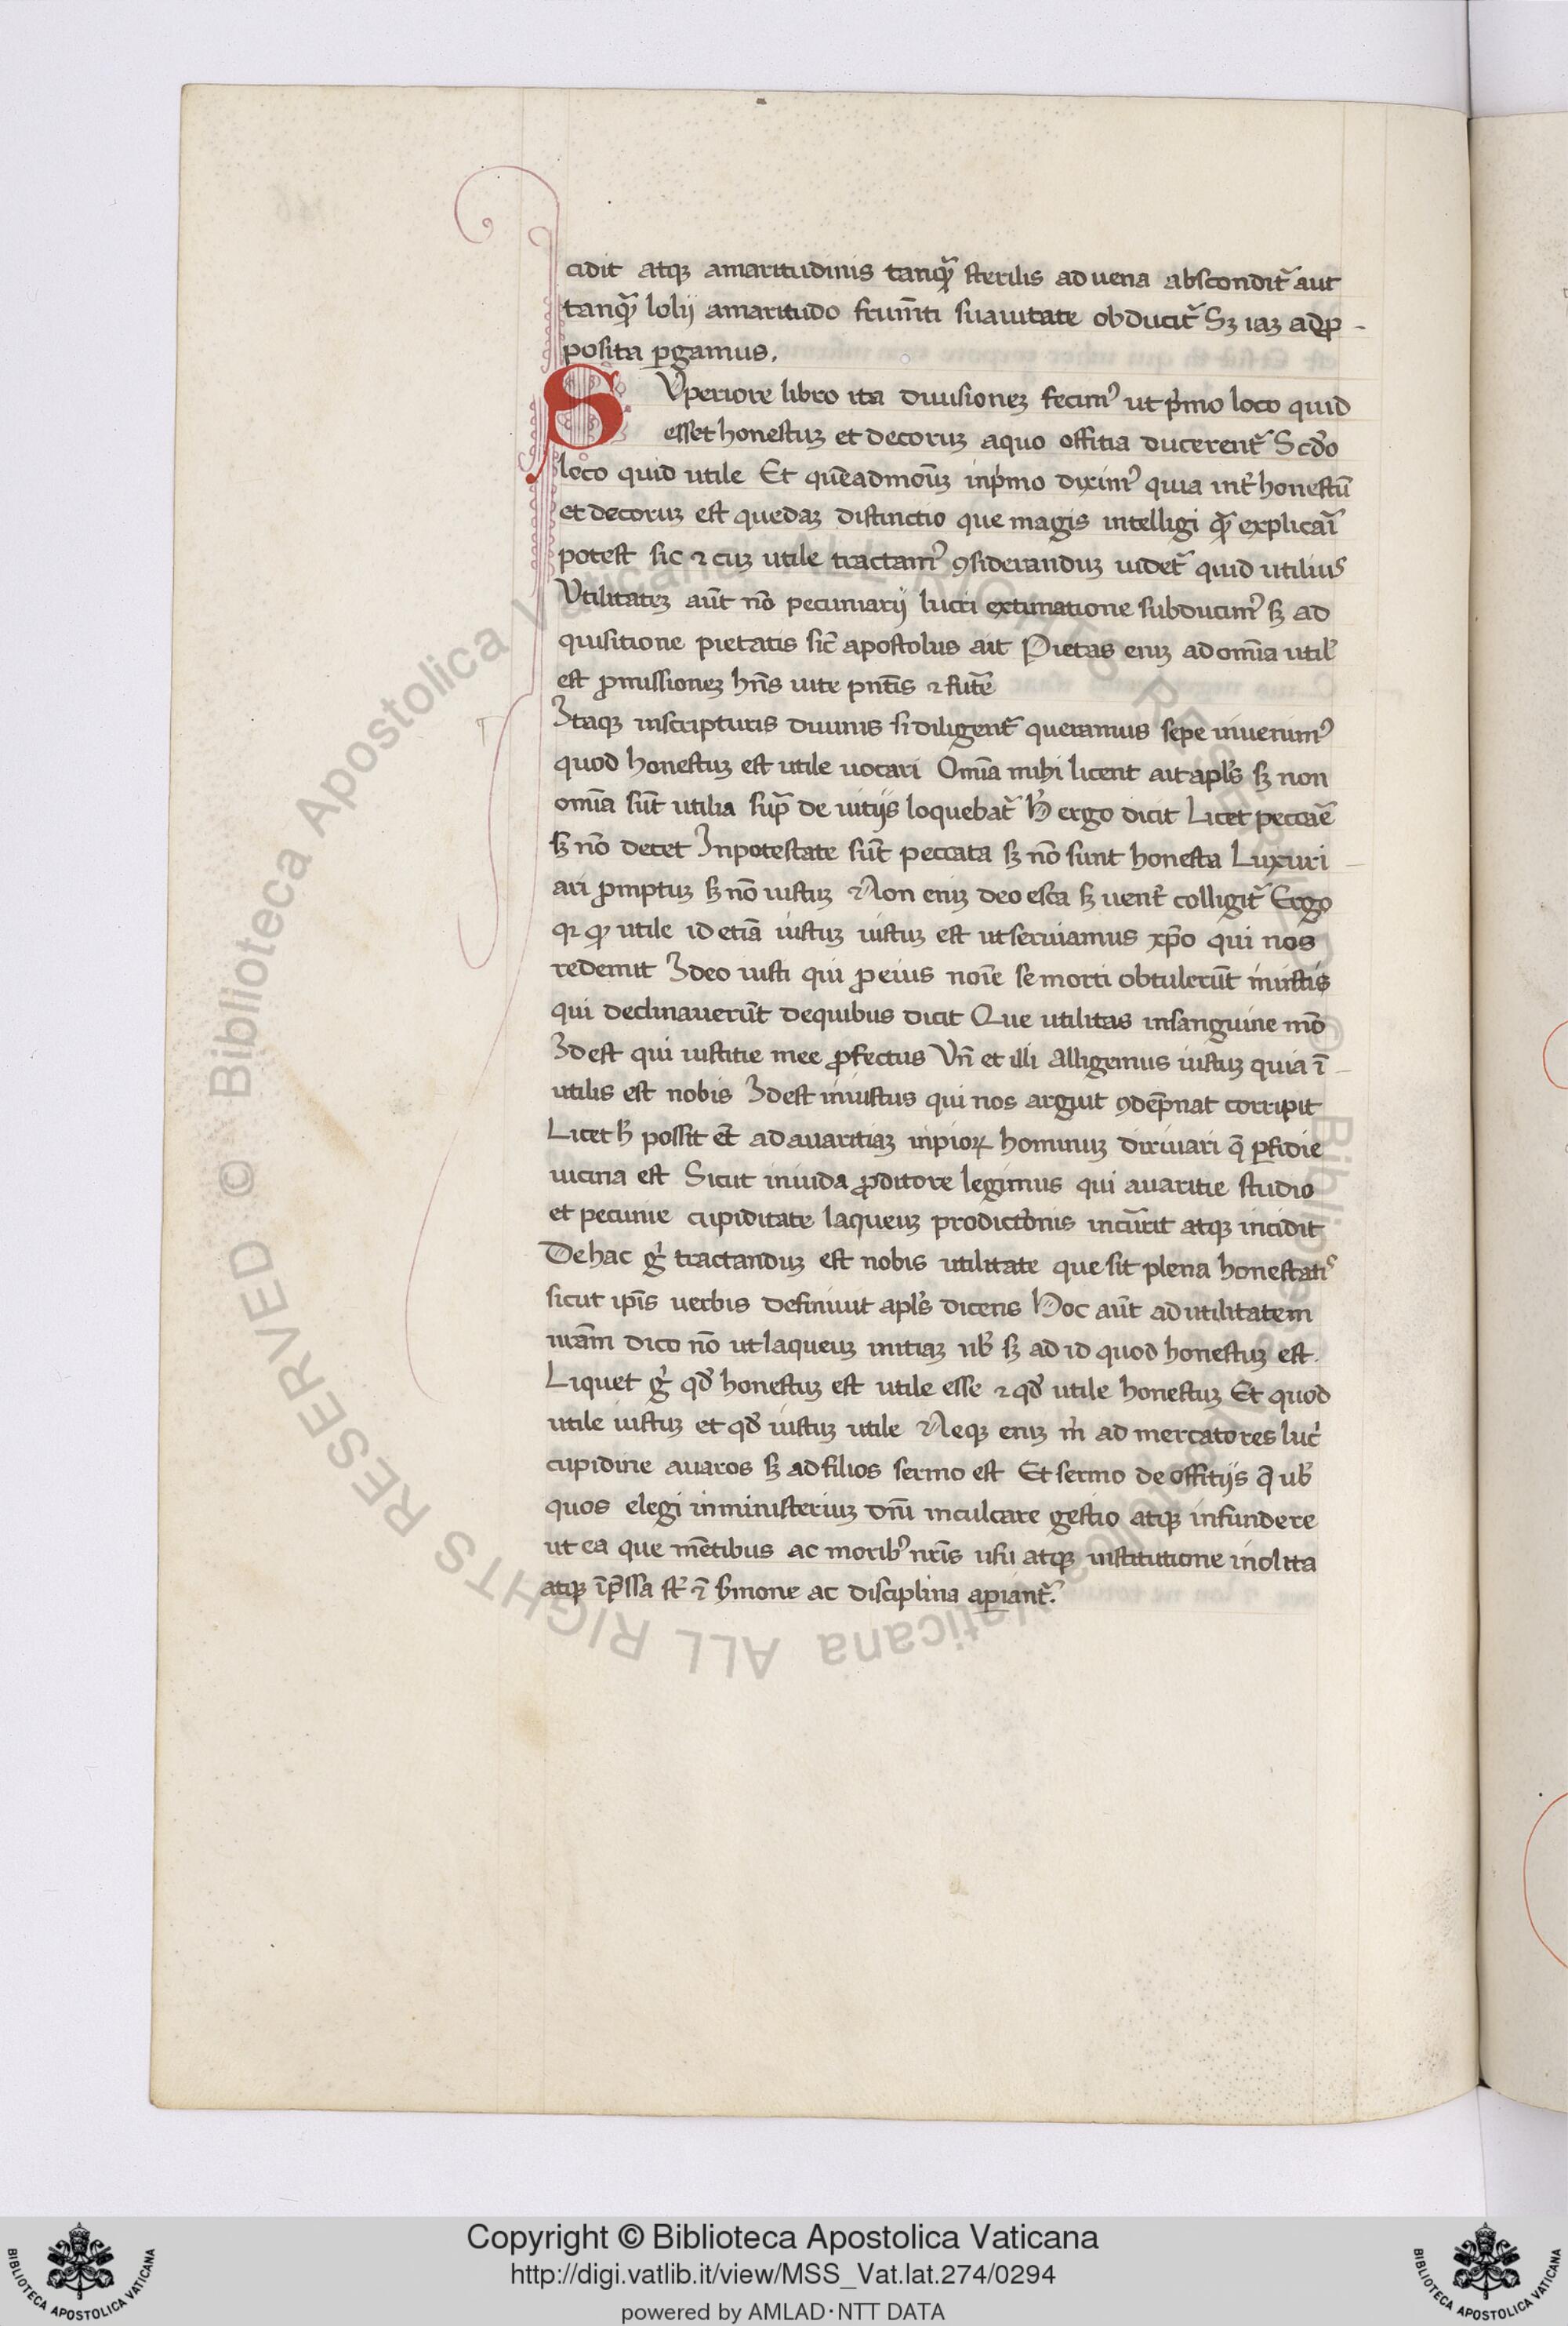 cidit atqꝫ amaritudinis tanqᷓ sterilis aduena abscondit᷑ aut
tanqᷓ lolij amaritudo frum̅ti suauitate obducit᷑ Sꝫ iaꝫ adꝓ-
posita ꝑgamus.
SVperiore libro ita diuisioneꝫ fecimꝰ ut pͥmo loco quid
esset honestuꝫ et decoruꝫ aquo offitia ducerent᷑ Scd̅o
loco quid utile Et que̅admoduꝫ inpͥmo diximꝰ quia int̾ honestu̅
et decoruꝫ est quedaꝫ distinctio que magis intelligi qᷓ explicai̅
potest sic ⁊ cuꝫ utile tractamꝰ ꝯsideranduꝫ uidet᷑ quid utilius
Vtilitateꝫ au̅t no̅ pecuniarij lucri extimatione subducimꝰ sꝫ ad
quisitione pietatis sic̅ apostolus ait Pietas eniꝫ ad om̅ia util̾
est ꝓmissioneꝫ hn̅s uite pn̅tis ⁊ fut̅e
Itaqꝫ inscripturis diuinis si diligent̾ queramus sepe inuenimꝰ
quod honestuꝫ est utile uocari Om̅ia mihi licent ait apl̅s sꝫ non
om̅ia su̅t utilia supᷓ de uitijs loquebat᷑ h̾ ergo dicit Licet pecca̅e
sꝫ no̅ decet Inpotestate su̅t peccata sꝫ no̅ sunt honesta Luxuri-
ari ꝓmptuꝫ sꝫ no̅ iustuꝫ Non eniꝫ deo esca sꝫ uent̾ colligit᷑ Ergo
qꝛ ꝙ utile id etia̅ iustuꝫ iustuꝫ est ut seruiamus xp̅o qui nos
redemit Ideo iusti qui ꝓ eius noi̅e se morti obtuleru̅t iniustis
qui declinaueru̅t dequibus dicit Que utilitas insanguine m̅o
Idest qui iustitie mee ꝓfectus Vn̅ et illi alligemus iustuꝫ quia i̅-
utilis est nobis Idest iniustus qui nos arguit ꝯde̅pnat corripit
Licet h̾ possit et̅ ad auaritiaꝫ inpioꝝ hominuꝫ diriuari q̅ ꝑfidie
uicina est Sicut iniuda ꝓditore legimus qui auaritie studio
et pecunie cupiditate laqueuꝫ prodicto̅nis incu̅rit atqꝫ incidit
Dehac gͥ tractanduꝫ est nobis utilitate que sit plena honestatiꝰ
sicut ip̅is uerbis definiuit apl̅s dicens Hoc au̅t ad utilitatem
ura̅m dico no̅ ut laqueuꝫ initiaꝫ ub̾ sꝫ ad id quod honestuꝫ est.
Liquet gͥ qd̾ honestuꝫ est utile esse ⁊ qd̾ utile honestuꝫ Et quod
utile iustuꝫ et qd̾ iustuꝫ utile Neqꝫ eniꝫ m̾ ad mercatores luc̾
cupidine auaros sꝫ ad filios sermo est Et sermo de offitijs q̅ ub̾
quos elegi in ministeriuꝫ dn̅i inculcare gestio atqꝫ infundere
ut ea que me̅tibus ac moribꝰ nr̅is usu atqꝫ institutione inolita
atqꝫ i̅p̅ssa st̾ ⁊ s̾mone ac disciplina aꝑiant᷑.
Copyright © Biblioteca Apostolica Vaticana
http://digi.vatlib.it/view/MSS_Vat.lat.274/0294
powered by AMLAD·NTT DATA
BIBLIOTECA APOSTOLICA VATICANA
BIBLIOTECA APOSTOLICA VATICANA
© Biblioteca Apostolica Vaticana ALL RIGHTS RESERVED
© Biblioteca Apostolica Vaticana ALL RIGHTS RESERVED